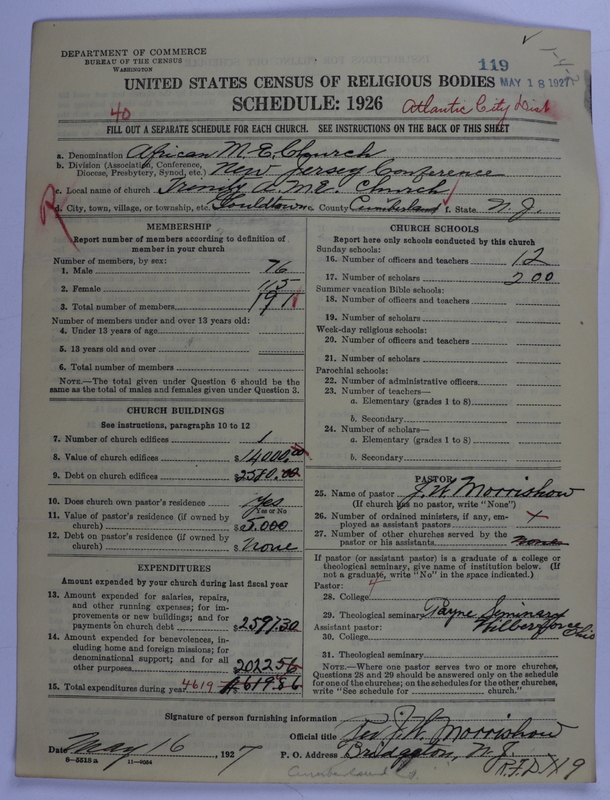 DEPARTMENT OF COMMERCE
BUREAU OF THE CENSUS
WASHINGTON
119
MAY 18 1927
UNITED STATES CENSUS OF RELIGIOUS BODIES
SCHEDULE: 1926
40
Atlantic City Dist
FILL OUT A SEPARATE SCHEDULE FOR EACH CHURCH. SEE INSTRUCTIONS ON THE BACK OF THIS SHEET
a. Denomination African M. E. Church
b. Division (Association, Conference, Diocese, Presbytery, Synod, etc.) New Jersey Conference
c. Local name of church Trinity A. M. E. Church
d. City, town, village, or township, etc. Gouldtown e. County Cumberland f. State N. J.
MEMBERSHIP
Report number of members according to definition of
member in your church
Number of members, by sex:
1. Male 76
2. Female 115
3. Total number of members 191
Number of members under and over 13 years old:
4. Under 13 years of age
5. 13 years old and over
6. Total number of members
NOTE.—The total given under Question 6 should be the
same as the total of males and females given under Question 3.
CHURCH BUILDINGS
See instructions, paragraphs 10 to 12
7. Number of church edifices 1
8. Value of church edifices $14000.00
9. Debt on church edifices $2580.00
10. Does church own pastor's residence Yes
Yes or No
11. Value of pastor's residence (if owned by
church) $3.000
12. Debt on pastor's residence (if owned by
church) $None
EXPENDITURES
Amount expended by your church during last fiscal year
13. Amount expended for salaries, repairs,
and other running expenses; for im-
provements or new buildings; and for
payments on church debt $2597.30
14. Amount expended for benevolences, in-
cluding home and foreign missions; for
denominational support; and for all
other purposes $2022.56
15. Total expenditures during year 4619 $4619.86
CHURCH SCHOOLS
Report here only schools conducted by this church
Sunday schools:
16. Number of officers and teachers 12
17. Number of scholars 200
Summer vacation Bible schools:
18. Number of officers and teachers
19. Number of scholars
Week-day religious schools:
20. Number of officers and teachers
21. Number of scholars
Parochial schools:
22. Number of administrative officers
23. Number of teachers—
a. Elementary (grades 1 to 8)
b. Secondary
24. Number of scholars—
a. Elementary (grades 1 to 8)
b. Secondary
PASTOR
25. Name of pastor J. W. Morrishow
(If church has no pastor, write "None")
26. Number of ordained ministers, if any, em-
ployed as assistant pastors x
27. Number of other churches served by the
pastor or his assistants None
If pastor (or assistant pastor) is a graduate of a college or
theological seminary, give name of institution below. (If
not a graduate, write "No" in the space indicated.)
Pastor: 4
28. College
29. Theological seminary Payne Seminary
Wilberforce Ohio
Assistant pastor:
30. College
31. Theological seminary
NOTE.—Where one pastor serves two or more churches,
Questions 28 and 29 should be answered only on the schedule
for one of the churches; on the schedules for the other churches,
write "See schedule for church."
Signature of person furnishing information
Official title Rev J. W. Morrishow
Date May 16, 1927 P. O. Address Bridgeton, N. J.
R.F.D
8—5319 a 11—8054
Cumberland